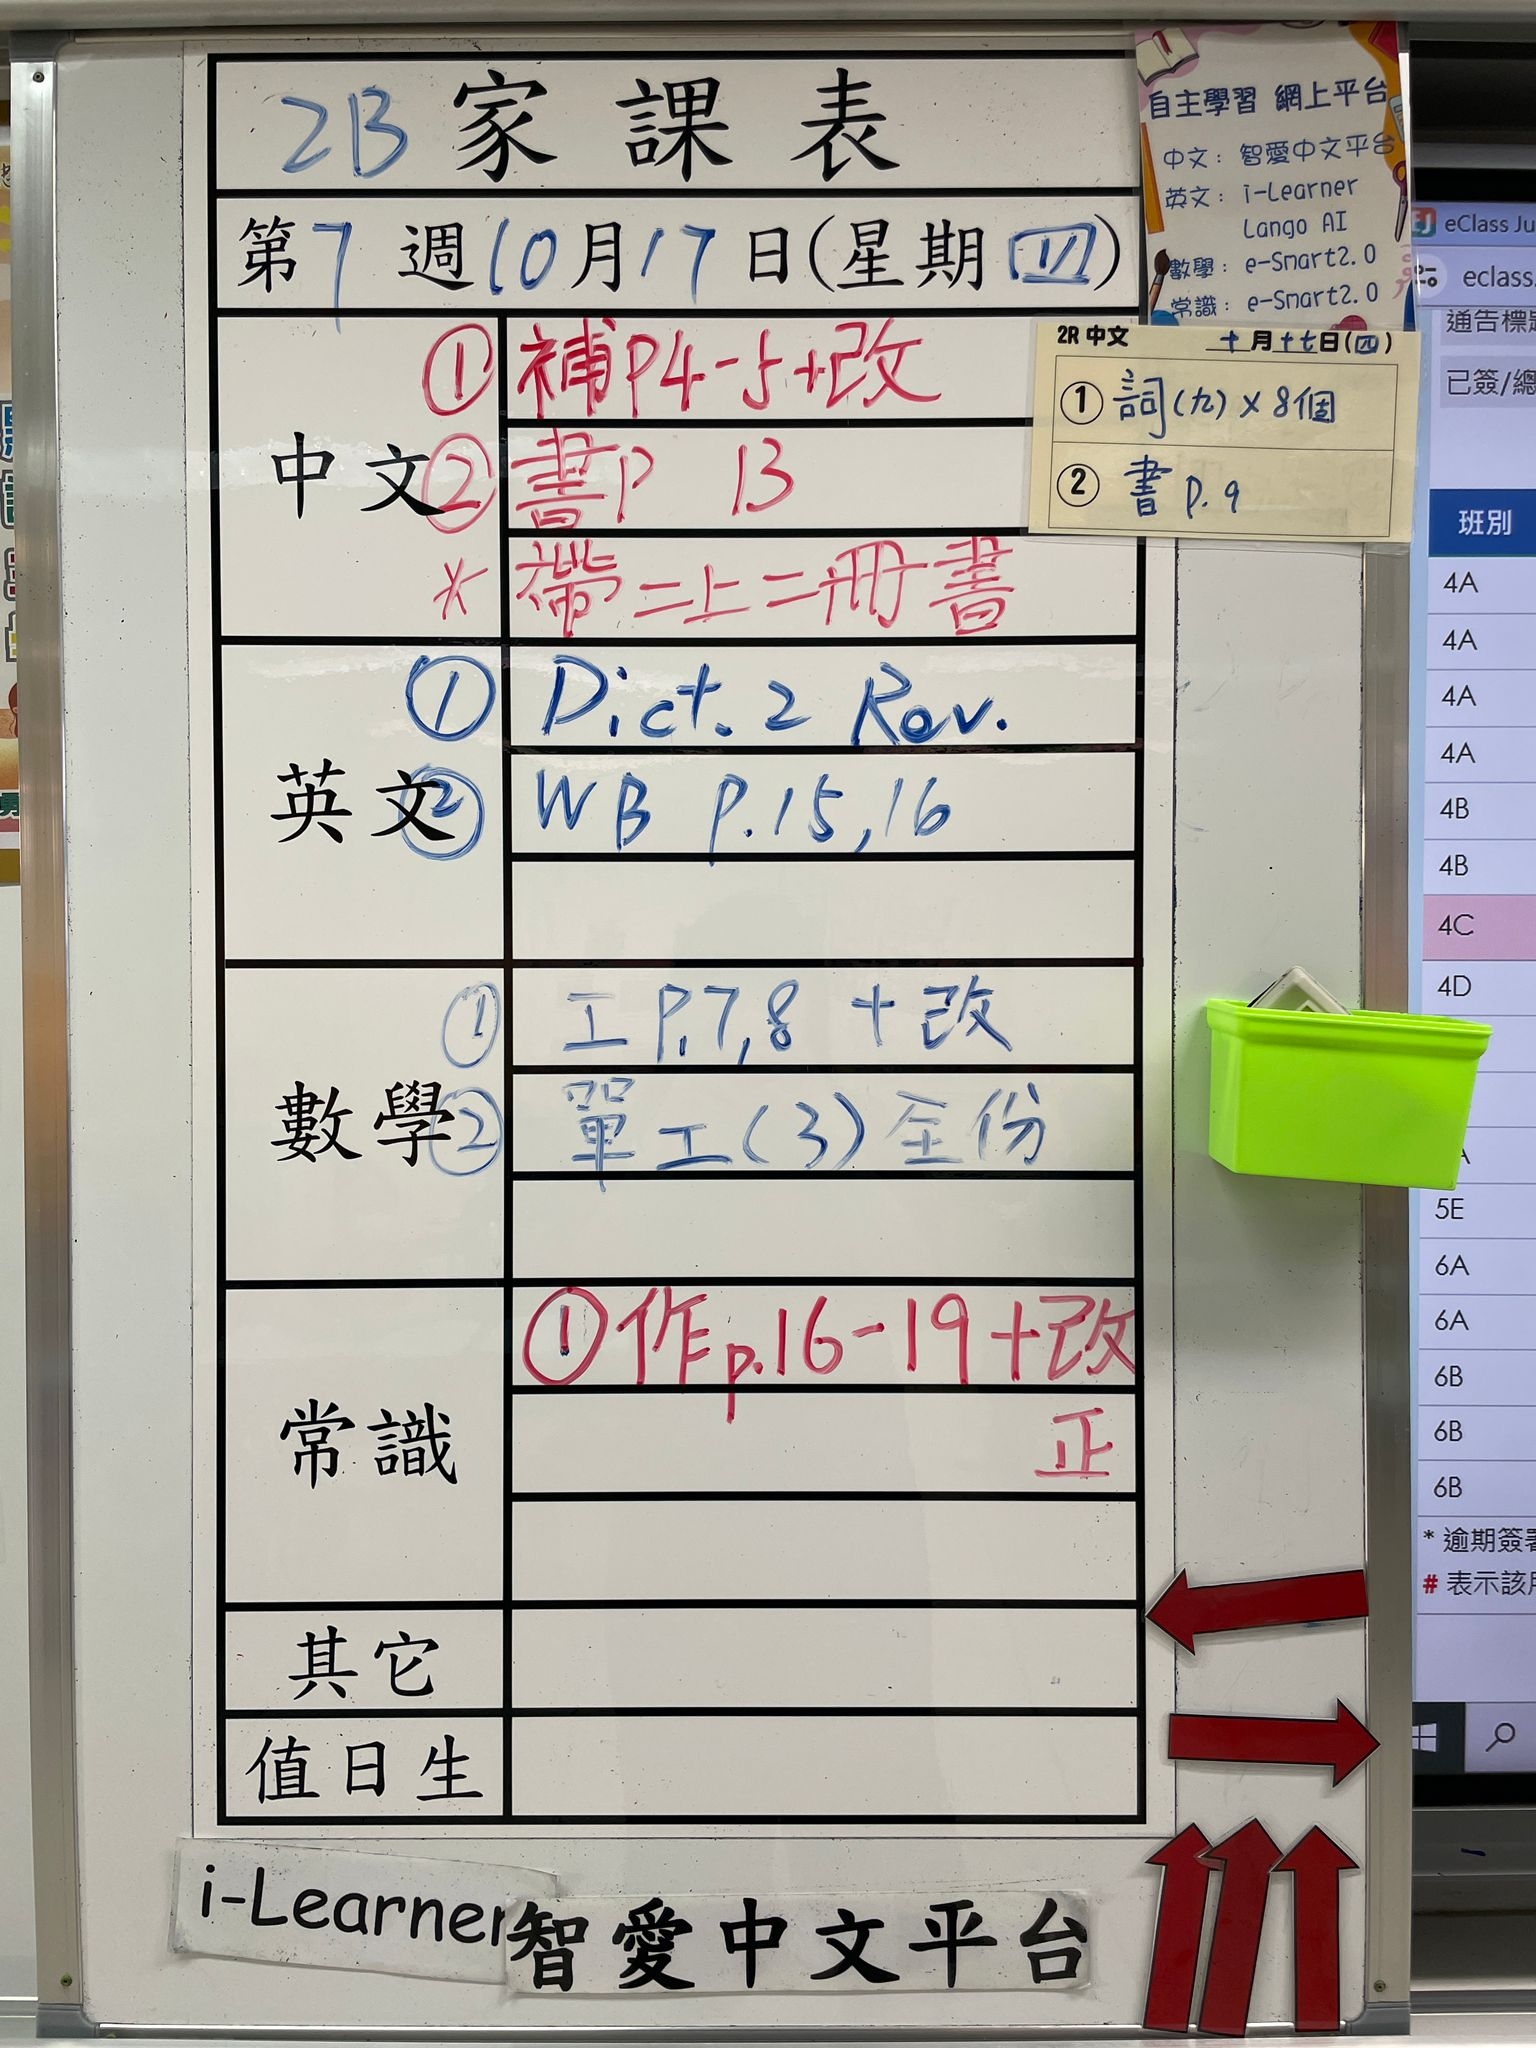 2B 家課表
第7週10月17日(星期四)
中文
① 補P4-5+改
② 書P 13
* 帶二上二冊書
英文
① Dict. 2 Rev.
② WB P.15,16
數學
① 工P.7,8 +改
② 單工(3)全份
常識
① 作p.16-19+改
正
其它
值日生
i-Learner
智愛中文平台
自主學習 網上平台
中文: 智愛中文平台
英文: i-Learner
Lango AI
數學: e-Smart2.0
常識: e-Smart2.0
2R 中文 十月十七日(四)
① 詞(九)×8個
② 書 p.9
eClass Ju
eclass.
通告標題
已簽/總
班別
4A
4A
4A
4A
4B
4B
4C
4D
5E
6A
6A
6B
6B
6B
* 逾期簽署
# 表示該用